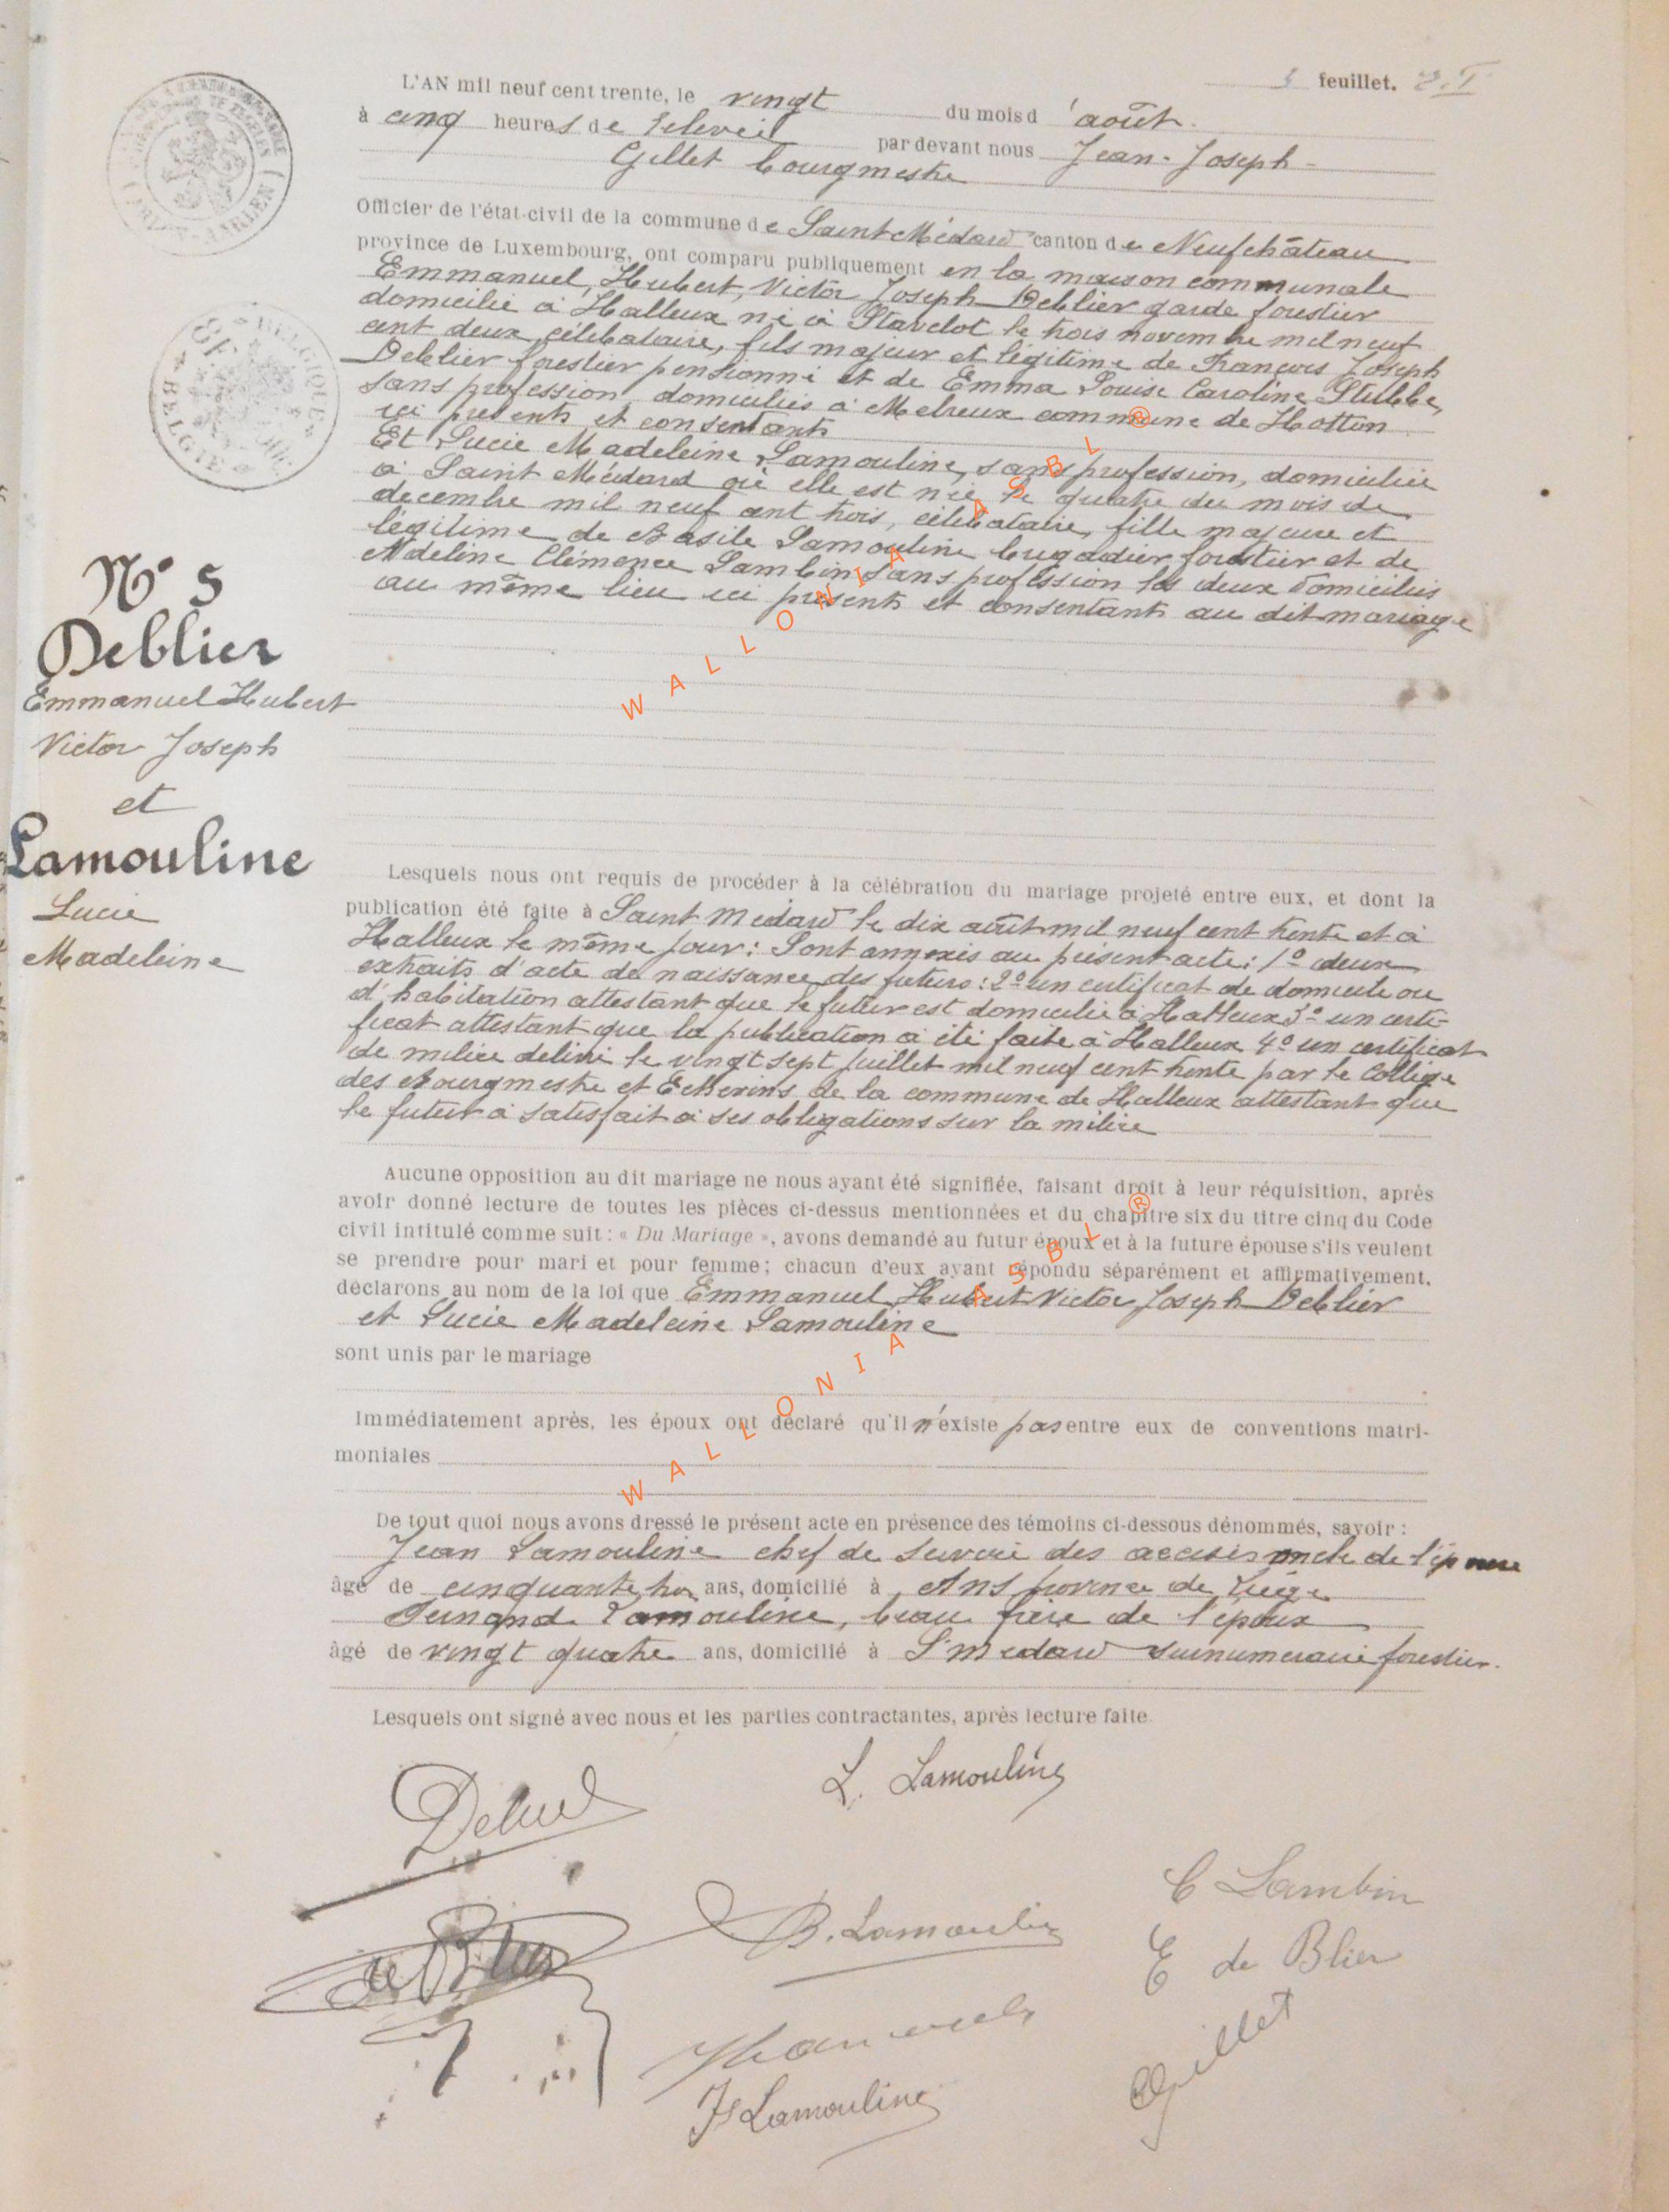 feuillet.
L'AN mil neuf cent trente, le vingt du mois d'août
à cinq heures de relevée par devant nous Jean-Joseph
Gillet bourgmestre
Officier de l'état-civil de la commune de Saint Médard canton de Neufchâteau
province de Luxembourg, ont comparu publiquement en la maison communale
Emmanuel, Hubert, Victor Joseph Deblier garde forestier
domicilié à Halleux né à Stavelot le trois novembre mil neuf
cent deux, célibataire, fils majeur et légitime de François Joseph
Deblier forestier pensionné et de Emma Louise Caroline Stubbe,
sans profession, domiciliés à Melreux commune de Hotton
ici présents et consentants
Et Lucie Madeleine Lamouline, sans profession, domiciliée
à Saint Médard où elle est née le quatre du mois de
décembre mil neuf cent trois, célibataire, fille majeure et
légitime de Basile Lamouline brigadier forestier et de
Adeline Clémence Lambin sans profession les deux domiciliés
au même lieu ici présents et consentants au dit mariage
N° 5
Deblier
Emmanuel Hubert
Victor Joseph
et
Lamouline
Lucie
Madeleine
Lesquels nous ont requis de procéder à la célébration du mariage projeté entre eux, et dont la
publication été faite à Saint Médard le dix août mil neuf cent trente et à
Halleux le même jour: Sont annexés au présent acte: 1° deux
extraits d'acte de naissance des futurs: 2° un certificat de domicile ou
d'habitation attestant que le futur est domicilié à Halleux 3° un certi-
ficat attestant que la publication a été faite à Halleux 4° un certificat
de milice délivré le vingt sept juillet mil neuf cent trente par le Collège
des Bourgmestre et Echevins de la commune de Halleux attestant que
le futur a satisfait à ses obligations sur la milice
Aucune opposition au dit mariage ne nous ayant été signifiée, faisant droit à leur réquisition, après
avoir donné lecture de toutes les pièces ci-dessus mentionnées et du chapitre six du titre cinq du Code
civil intitulé comme suit : « Du Mariage », avons demandé au futur époux et à la future épouse s'ils veulent
se prendre pour mari et pour femme; chacun d'eux ayant répondu séparément et affirmativement,
déclarons au nom de la loi que Emmanuel Hubert Victor Joseph Deblier
et Lucie Madeleine Lamouline
sont unis par le mariage
Immédiatement après, les époux ont déclaré qu'il n'existe pas entre eux de conventions matri-
moniales
De tout quoi nous avons dressé le présent acte en présence des témoins ci-dessous dénommés, savoir :
Jean Lamouline chef de service des accises oncle de l'épouse
âgé de cinquante trois ans, domicilié à Ans province de Liège
Fernand Lamouline, beau frère de l'époux
âgé de vingt quatre ans, domicilié à St Médard surnuméraire forestier.
Lesquels ont signé avec nous et les parties contractantes, après lecture faite.
L. Lamouline
C Lambin
B. Lamouline
E de Blier
Gillet
Lamouline
BELGIQUE
BELGIE
WALLONIA ASBL ®
WALLONIA ASBL ®